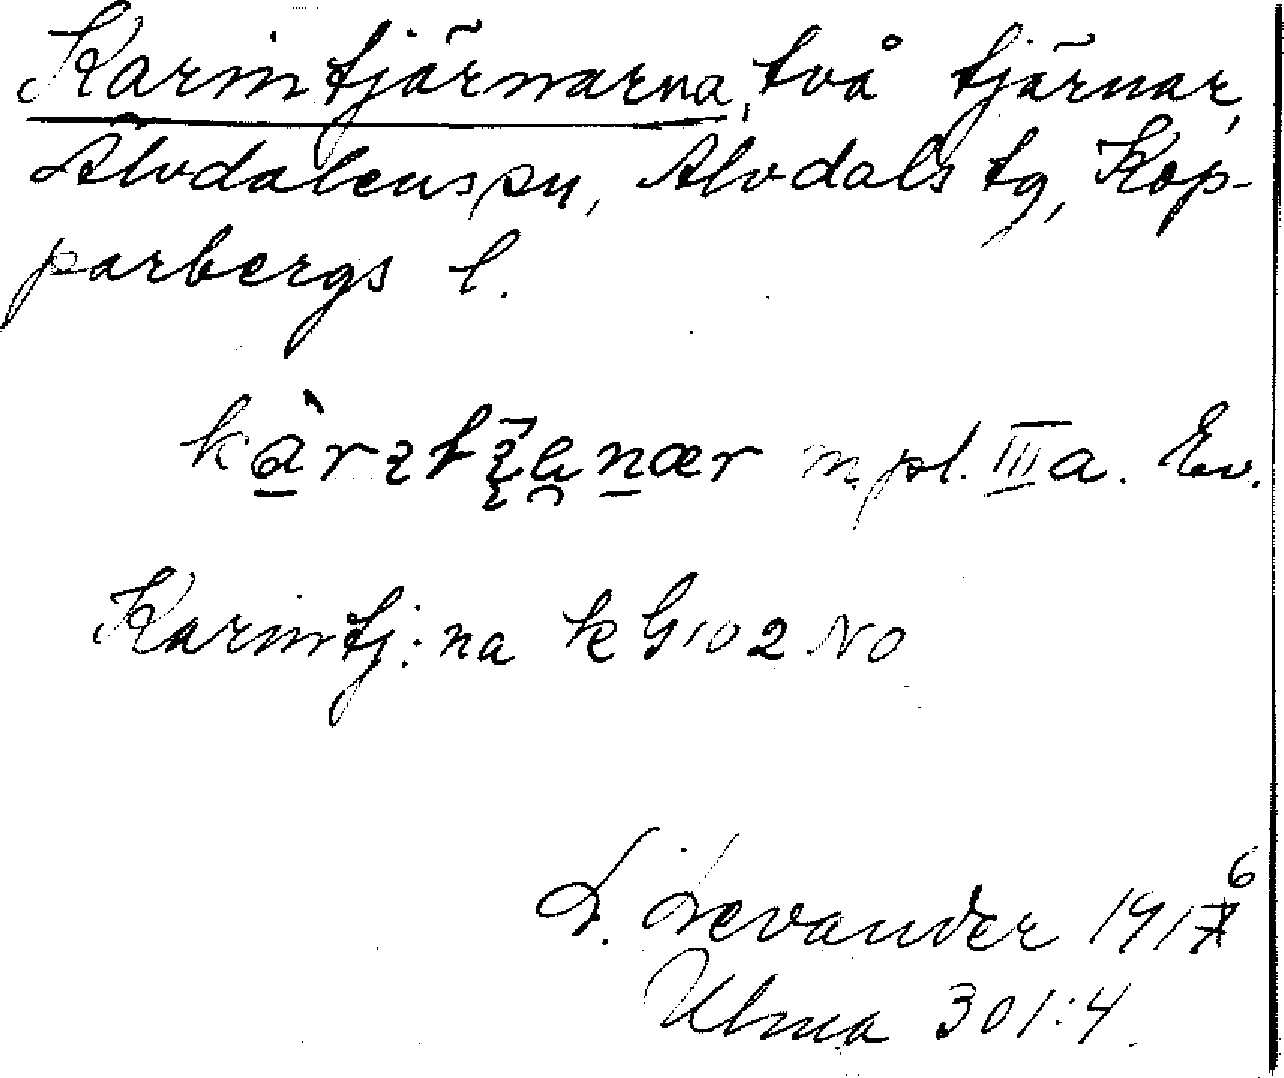 Karintjärnarna, två tjärnar,
Älvdalens sn, Älvdals tg, Kop-
parbergs l.
m pl. III a. Ev.
Karintj:na k G 102 NO
L. Levander 1916
Ulma 301:4.